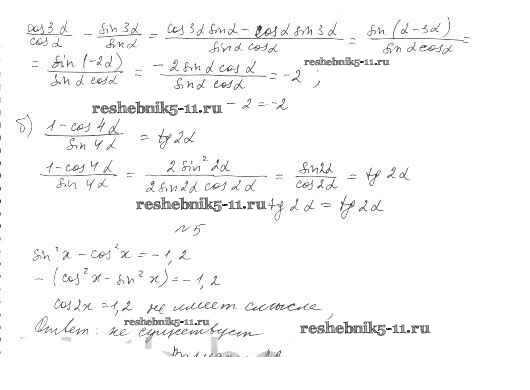 cos3α/cosα − sin3α/sinα = (cos3α sinα − cosα sin3α)/(sinα cosα) = sin(α−3α)/(sinα cosα) =
reshebnik5-11.ru
= sin(−2α)/(sinα cosα) = −2sinα cosα/(sinα cosα) = −2 ;
reshebnik5-11.ru −2=−2
б) (1−cos4α)/sin4α = tg2α
(1−cos4α)/sin4α = 2sin²2α/(2sin2α cos2α) = sin2α/cos2α = tg2α
reshebnik5-11.ru tg2α = tg2α
№5
sin²x − cos²x = −1,2
−(cos²x − sin²x) = −1,2
cos2x = 1,2 не имеет смысла
reshebnik5-11.ru
Ответ: не существует
reshebnik5-11.ru